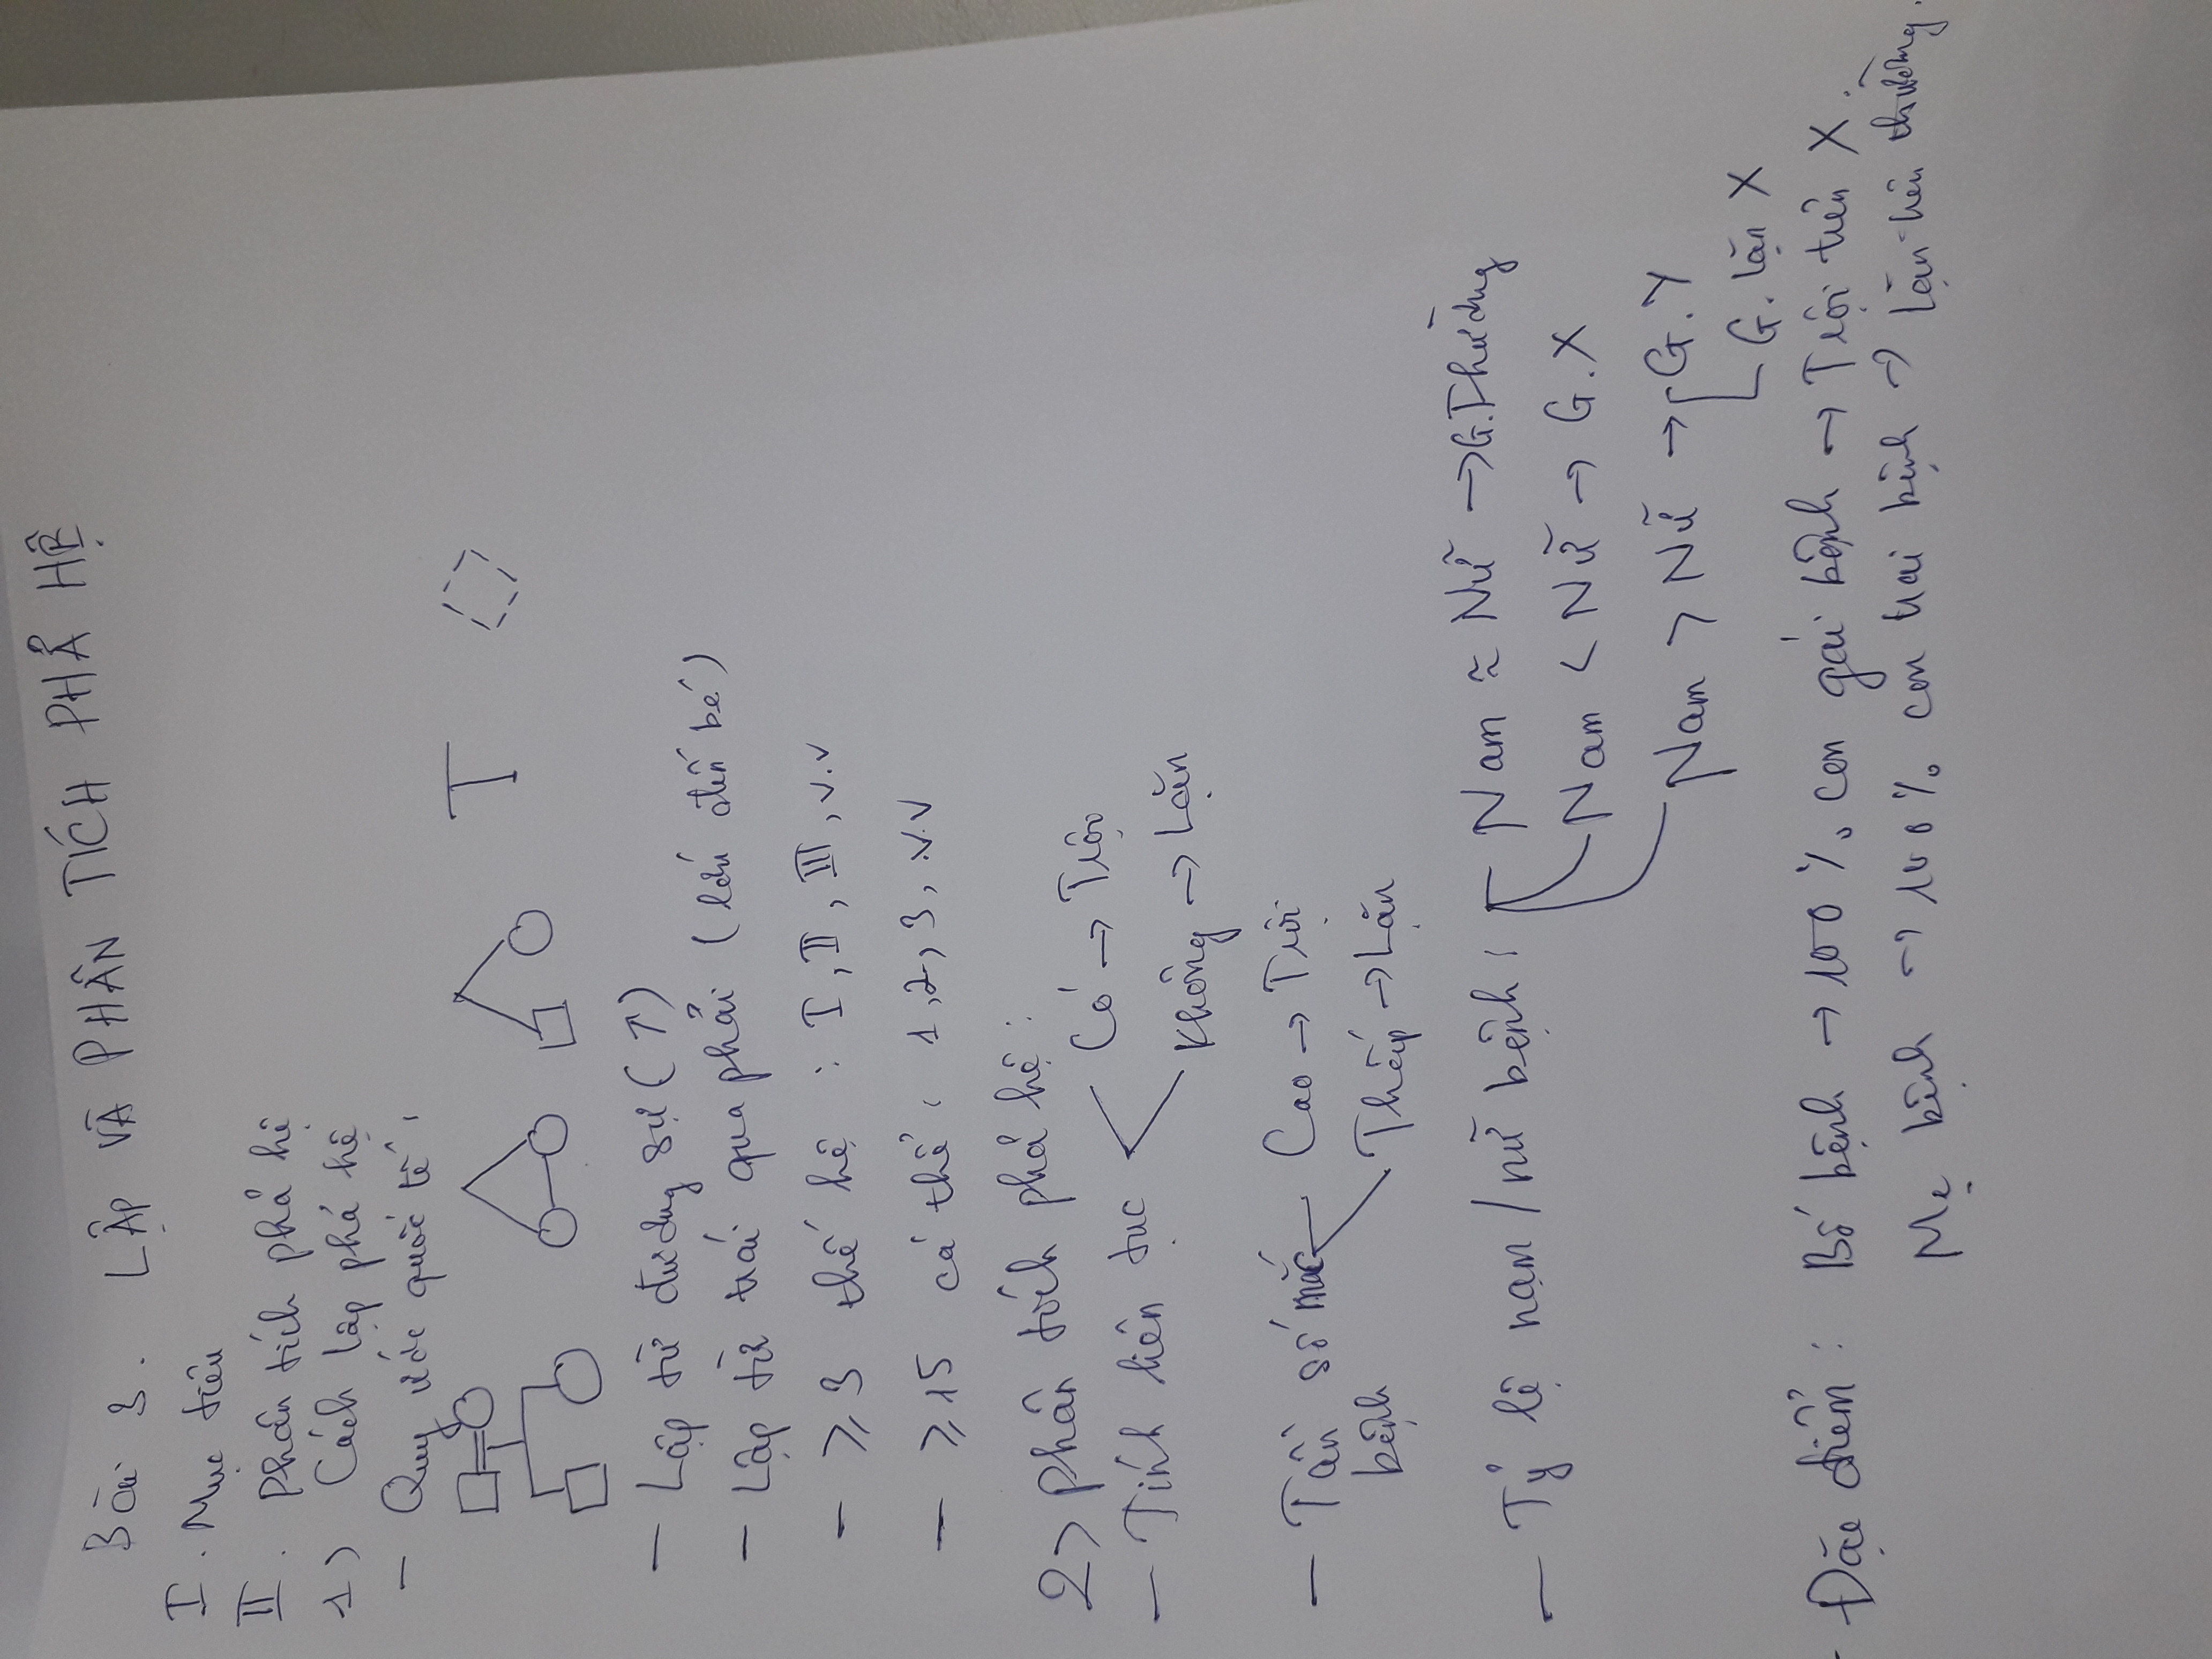 Bài 3. LẬP VÀ PHÂN TÍCH PHẢ HỆ
I. Mục tiêu
II. Phân tích phả hệ
1) Cách lập phả hệ
- Quy ước quốc tế:
- Lập từ đương sự (↑)
- Lập từ trái qua phải (lớn đến bé)
- ≥ 3 thế hệ : I, II, III, v.v
- ≥ 15 cá thể: 1, 2, 3, v.v
2> Phân tích phả hệ:
- Tính liên tục
Có → Trội
Không → Lặn
- Tần số mắc bệnh
Cao → Trội
Thấp → Lặn
- Tỷ lệ nam/nữ bệnh:
Nam ≈ Nữ → G.Thường
Nam < Nữ → G.X
Nam > Nữ → G.Y
G. lặn X
- Đặc điểm: Bố bệnh → 100% con gái bệnh → Trội trên X.
Mẹ bệnh → 100% con trai bệnh → Lặn trên thường.